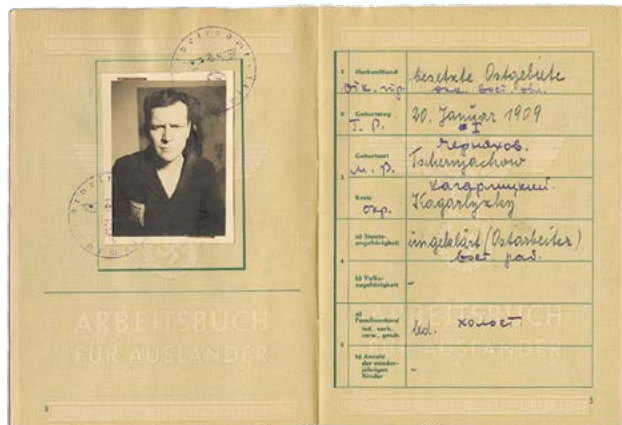 ARBEITSBUCH
FÜR AUSLÄNDER
8
1 Herkunftland
besetzte Ostgebiete
2 Geburtstag
20. Januar 1909
I
Т. Р.
Geburtsort
Чернахов.
Tschernjachow
М. Р.
Kreis
Кагарлицкий.
Kagarlyzky
окр.
4
a) Staats-
angehörigkeit
ungeklärt (Ostarbeiter)
вост. раб.
b) Volks-
zugehörigkeit
-
a)
Familienstand
led., verh.,
verw., gesch.
led. холост
b) Anzahl
der minder-
jährigen
Kinder
-
ARBEITSBUCH
FÜR AUSLÄNDER
5